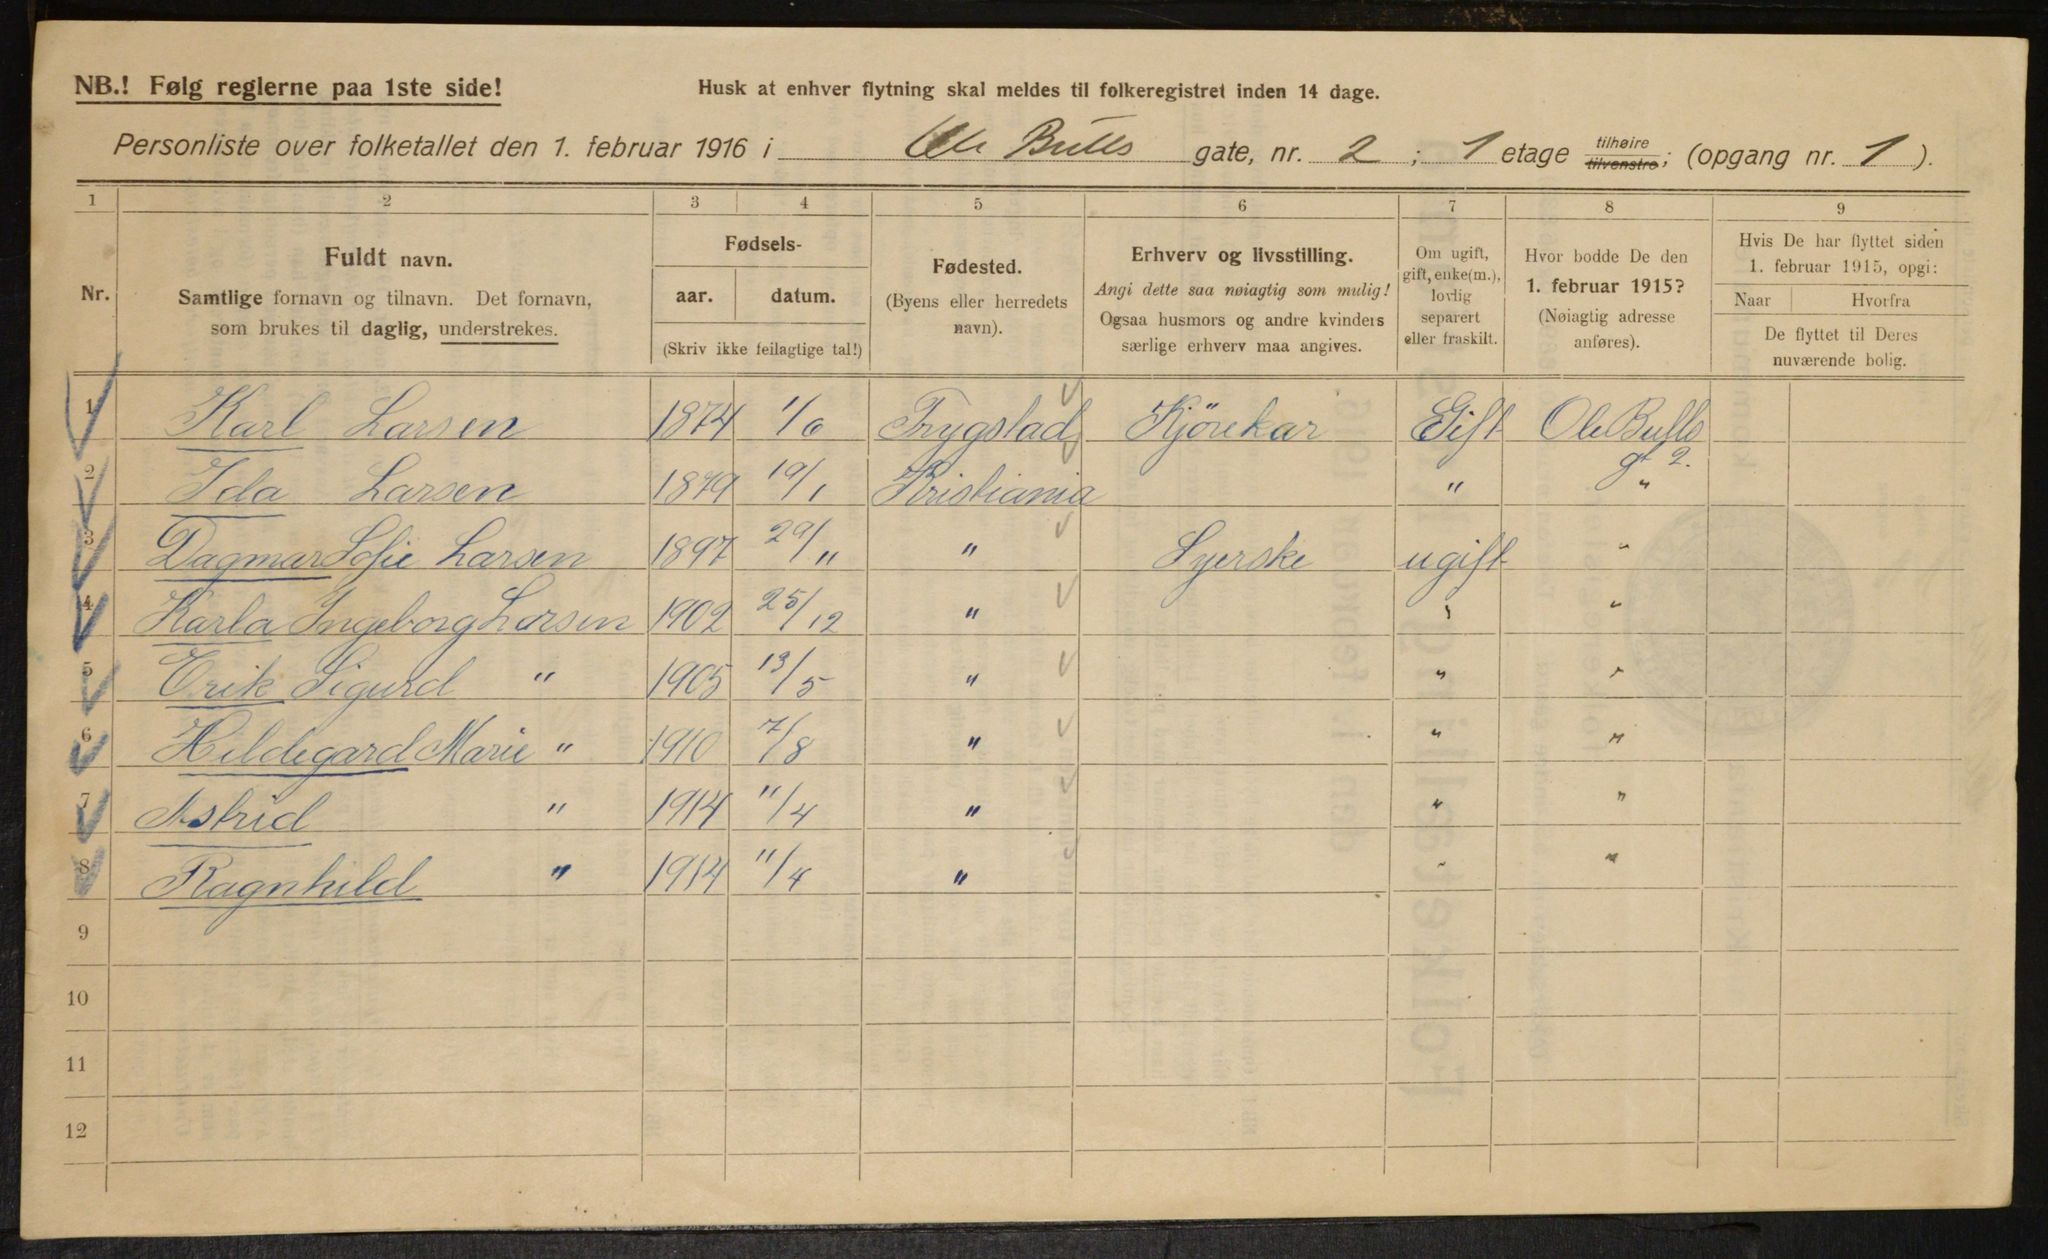 NB.! Følg reglerne paa 1ste side!
Husk at enhver flytning skal meldes til folkeregistret inden 14 dage.
Personliste over folketallet den 1. februar 1916 i Ole Bulls gate, nr. 2 ; 1 etage tilhøire tilvenstre; (opgang nr. 1 ).
1 2 3 4 5 6 7 8 9
Nr.
Fuldt navn.
Samtlige fornavn og tilnavn. Det fornavn,
som brukes til daglig, understrekes.
Fødsels-
aar. datum.
(Skriv ikke feilagtige tal!)
Fødested.
(Byens eller herredets
navn).
Erhverv og livsstilling.
Angi dette saa nøiagtig som mulig!
Ogsaa husmors og andre kvinders
særlige erhverv maa angives.
Om ugift,
gift, enke(m.),
lovlig
separert
eller fraskilt.
Hvor bodde De den
1. februar 1915?
(Nøiagtig adresse
anføres).
Hvis De har flyttet siden
1. februar 1915, opgi:
Naar Hvorfra
De flyttet til Deres
nuværende bolig.
1 Karl Larsen 1874 1/6 Trygstad Kjörekar Gift Ole Bulls
gt 2.
2 Ida Larsen 1879 19/1 Kristiania " "
3 Dagmar Sofie Larsen 1897 29/11 " Syerske ugift "
4 Karla Ingeborg Larsen 1902 25/12 " " "
5 Erik Sigurd " 1905 13/5 " " "
6 Hildegard Marie " 1910 7/8 " " "
7 Astrid " 1914 11/4 " " "
8 Ragnhild " 1914 11/4 " " "
9
10
11
12